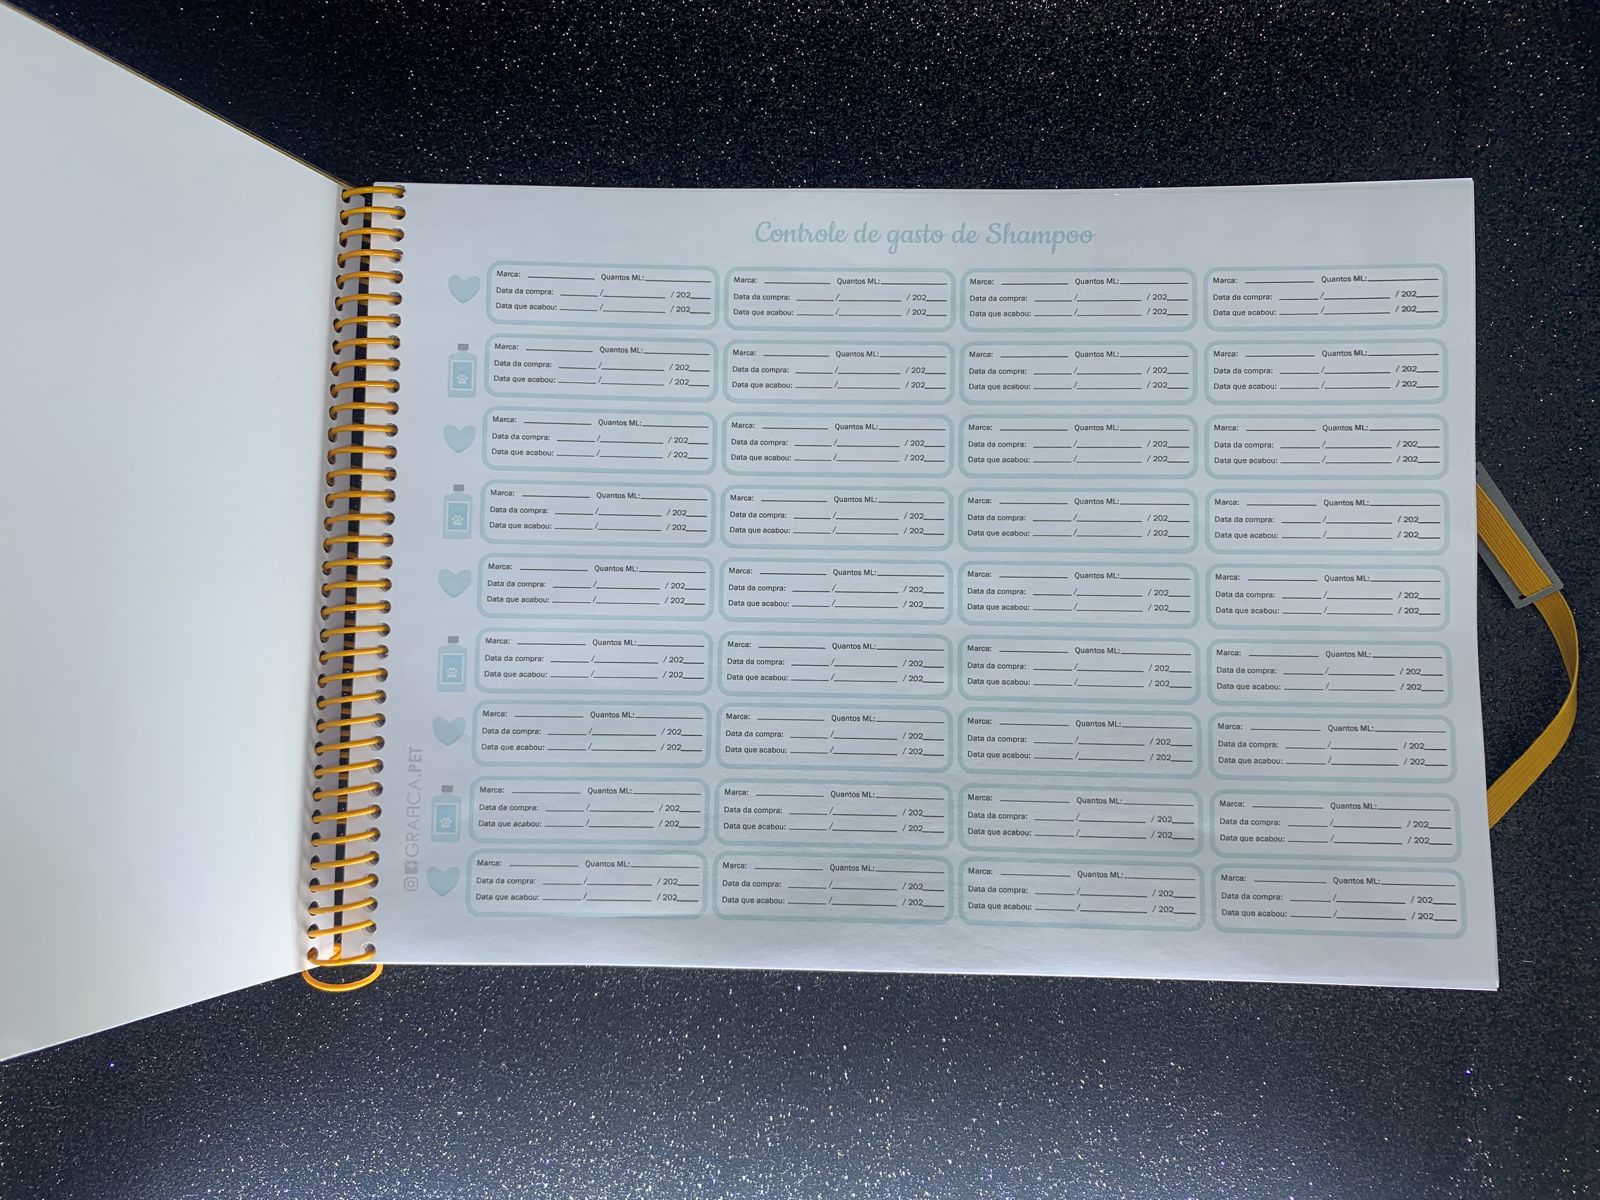 Controle de gasto de Shampoo
Marca: ____ Quantos ML:____
Data da compra: ____/____ / 202__
Data que acabou: ____/____ / 202__
Marca: ____ Quantos ML:____
Data da compra: ____/____ / 202__
Data que acabou: ____/____ / 202__
Marca: ____ Quantos ML:____
Data da compra: ____/____ / 202__
Data que acabou: ____/____ / 202__
Marca: ____ Quantos ML:____
Data da compra: ____/____ / 202__
Data que acabou: ____/____ / 202__
Marca: ____ Quantos ML:____
Data da compra: ____/____ / 202__
Data que acabou: ____/____ / 202__
Marca: ____ Quantos ML:____
Data da compra: ____/____ / 202__
Data que acabou: ____/____ / 202__
Marca: ____ Quantos ML:____
Data da compra: ____/____ / 202__
Data que acabou: ____/____ / 202__
Marca: ____ Quantos ML:____
Data da compra: ____/____ / 202__
Data que acabou: ____/____ / 202__
Marca: ____ Quantos ML:____
Data da compra: ____/____ / 202__
Data que acabou: ____/____ / 202__
Marca: ____ Quantos ML:____
Data da compra: ____/____ / 202__
Data que acabou: ____/____ / 202__
Marca: ____ Quantos ML:____
Data da compra: ____/____ / 202__
Data que acabou: ____/____ / 202__
Marca: ____ Quantos ML:____
Data da compra: ____/____ / 202__
Data que acabou: ____/____ / 202__
Marca: ____ Quantos ML:____
Data da compra: ____/____ / 202__
Data que acabou: ____/____ / 202__
Marca: ____ Quantos ML:____
Data da compra: ____/____ / 202__
Data que acabou: ____/____ / 202__
Marca: ____ Quantos ML:____
Data da compra: ____/____ / 202__
Data que acabou: ____/____ / 202__
Marca: ____ Quantos ML:____
Data da compra: ____/____ / 202__
Data que acabou: ____/____ / 202__
Marca: ____ Quantos ML:____
Data da compra: ____/____ / 202__
Data que acabou: ____/____ / 202__
Marca: ____ Quantos ML:____
Data da compra: ____/____ / 202__
Data que acabou: ____/____ / 202__
Marca: ____ Quantos ML:____
Data da compra: ____/____ / 202__
Data que acabou: ____/____ / 202__
Marca: ____ Quantos ML:____
Data da compra: ____/____ / 202__
Data que acabou: ____/____ / 202__
Marca: ____ Quantos ML:____
Data da compra: ____/____ / 202__
Data que acabou: ____/____ / 202__
Marca: ____ Quantos ML:____
Data da compra: ____/____ / 202__
Data que acabou: ____/____ / 202__
Marca: ____ Quantos ML:____
Data da compra: ____/____ / 202__
Data que acabou: ____/____ / 202__
Marca: ____ Quantos ML:____
Data da compra: ____/____ / 202__
Data que acabou: ____/____ / 202__
Marca: ____ Quantos ML:____
Data da compra: ____/____ / 202__
Data que acabou: ____/____ / 202__
Marca: ____ Quantos ML:____
Data da compra: ____/____ / 202__
Data que acabou: ____/____ / 202__
Marca: ____ Quantos ML:____
Data da compra: ____/____ / 202__
Data que acabou: ____/____ / 202__
Marca: ____ Quantos ML:____
Data da compra: ____/____ / 202__
Data que acabou: ____/____ / 202__
Marca: ____ Quantos ML:____
Data da compra: ____/____ / 202__
Data que acabou: ____/____ / 202__
Marca: ____ Quantos ML:____
Data da compra: ____/____ / 202__
Data que acabou: ____/____ / 202__
Marca: ____ Quantos ML:____
Data da compra: ____/____ / 202__
Data que acabou: ____/____ / 202__
Marca: ____ Quantos ML:____
Data da compra: ____/____ / 202__
Data que acabou: ____/____ / 202__
Marca: ____ Quantos ML:____
Data da compra: ____/____ / 202__
Data que acabou: ____/____ / 202__
Marca: ____ Quantos ML:____
Data da compra: ____/____ / 202__
Data que acabou: ____/____ / 202__
Marca: ____ Quantos ML:____
Data da compra: ____/____ / 202__
Data que acabou: ____/____ / 202__
Marca: ____ Quantos ML:____
Data da compra: ____/____ / 202__
Data que acabou: ____/____ / 202__
GRAFICA.PET